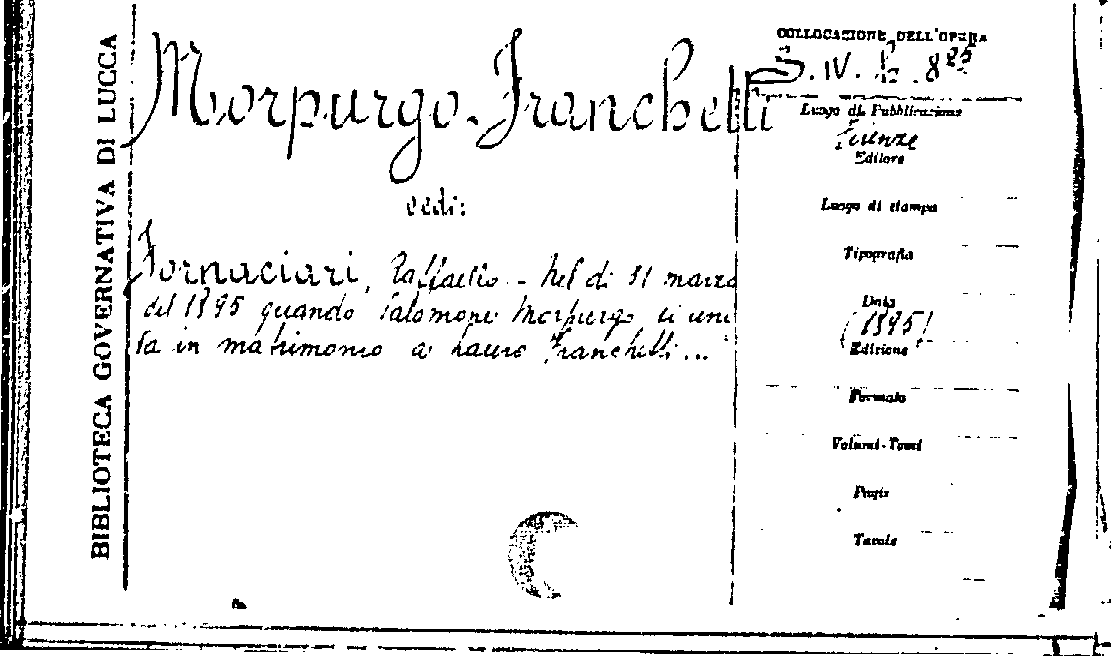 BIBLIOTECA GOVERNATIVA DI LUCCA
Morpurgo-Franchetti
vedi:
Fornaciari, Raffaello - Nel dì 31 marzo
del 1895 quando Salomone Morpurgo si uni
va in matrimonio a Laura Franchetti...
COLLOCAZIONE DELL'OPERA
IV. 885
Luogo di Pubblicazione
Firenze
Editore
Luogo di stampa
Tipografia
Data
(1895)
Edizione
Formato
Volumi-Tomi
Pagine
Tavole